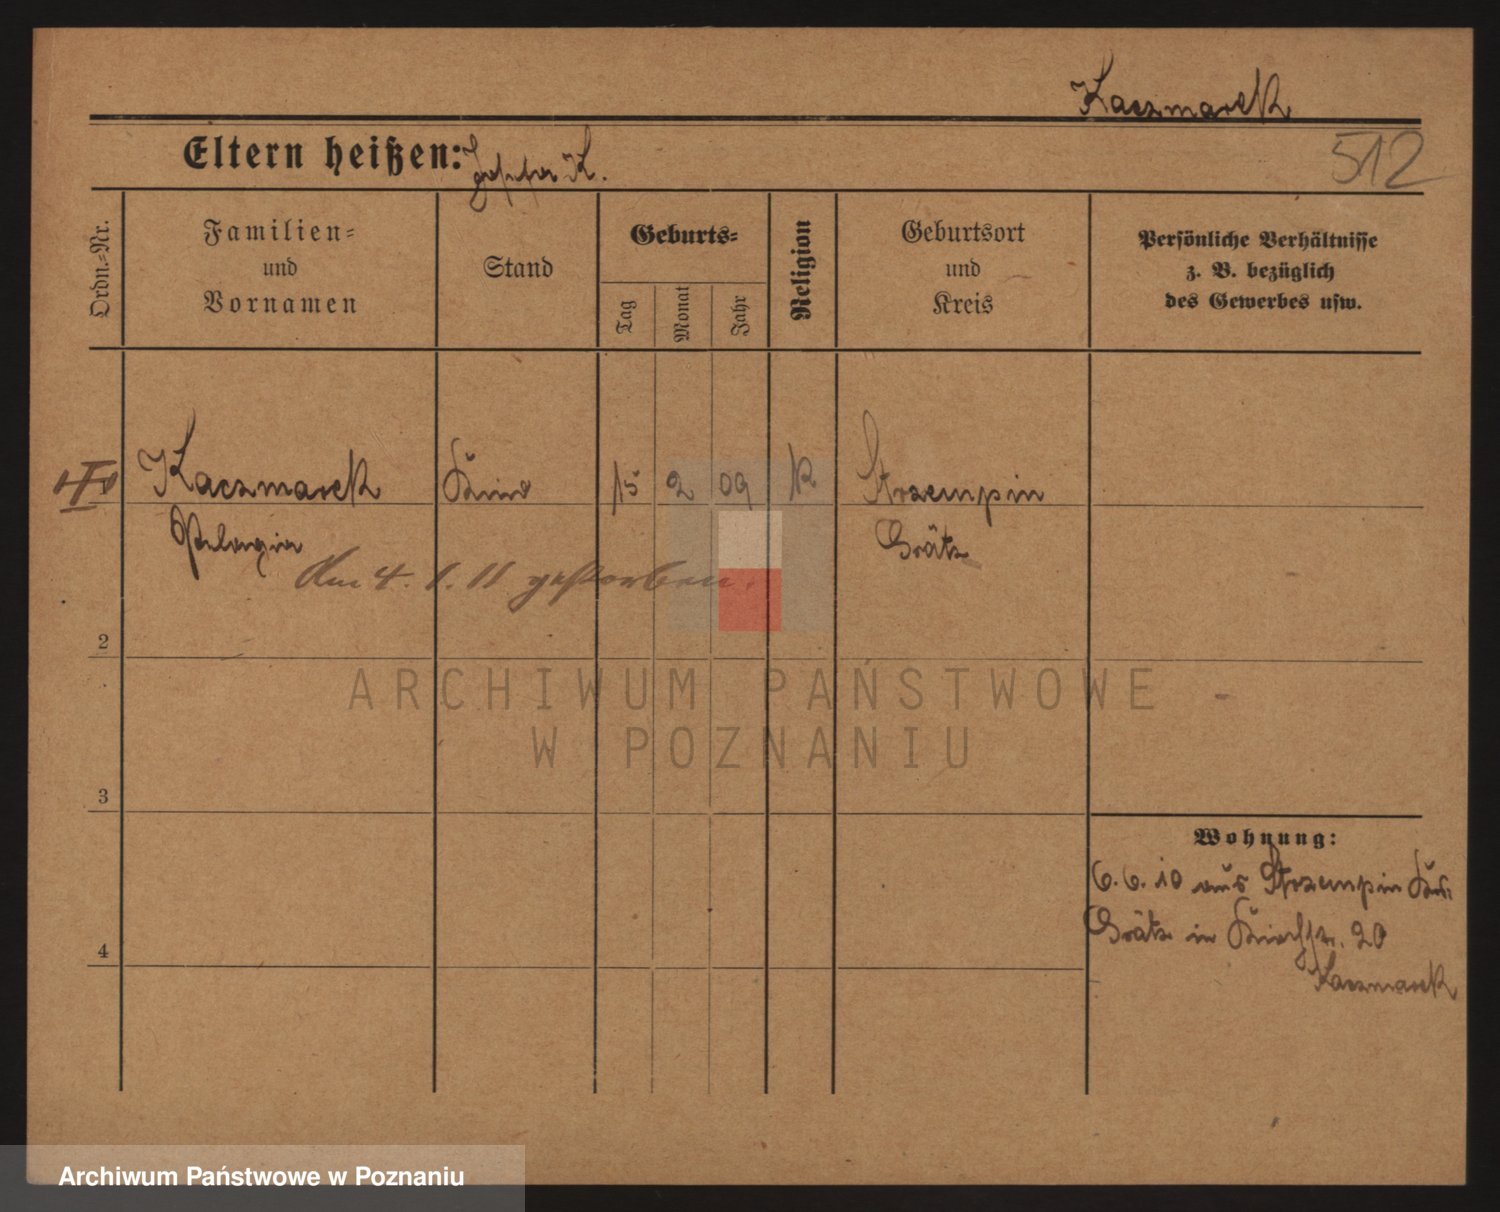 Kaczmarek
Eltern heißen: Josepha K.
512
Ordn.-Nr.
Familien-
und
Vornamen
Stand
Geburts-
Tag
Monat
Jahr
Religion
Geburtsort
und
Kreis
Persönliche Verhältnisse
z. B. bezüglich
des Gewerbes usw.
Kaczmarek Kind 15 2 09 K Strzempin
Pelagia Grätz
Am 4. 1. 11 gestorben.
2
ARCHIWUM PAŃSTWOWE
W POZNANIU
3
Wohnung:
6.6.10 aus Strzempin Krs.
Grätz in Kirchstr. 20
4
Kaczmarek
Archiwum Państwowe w Poznaniu